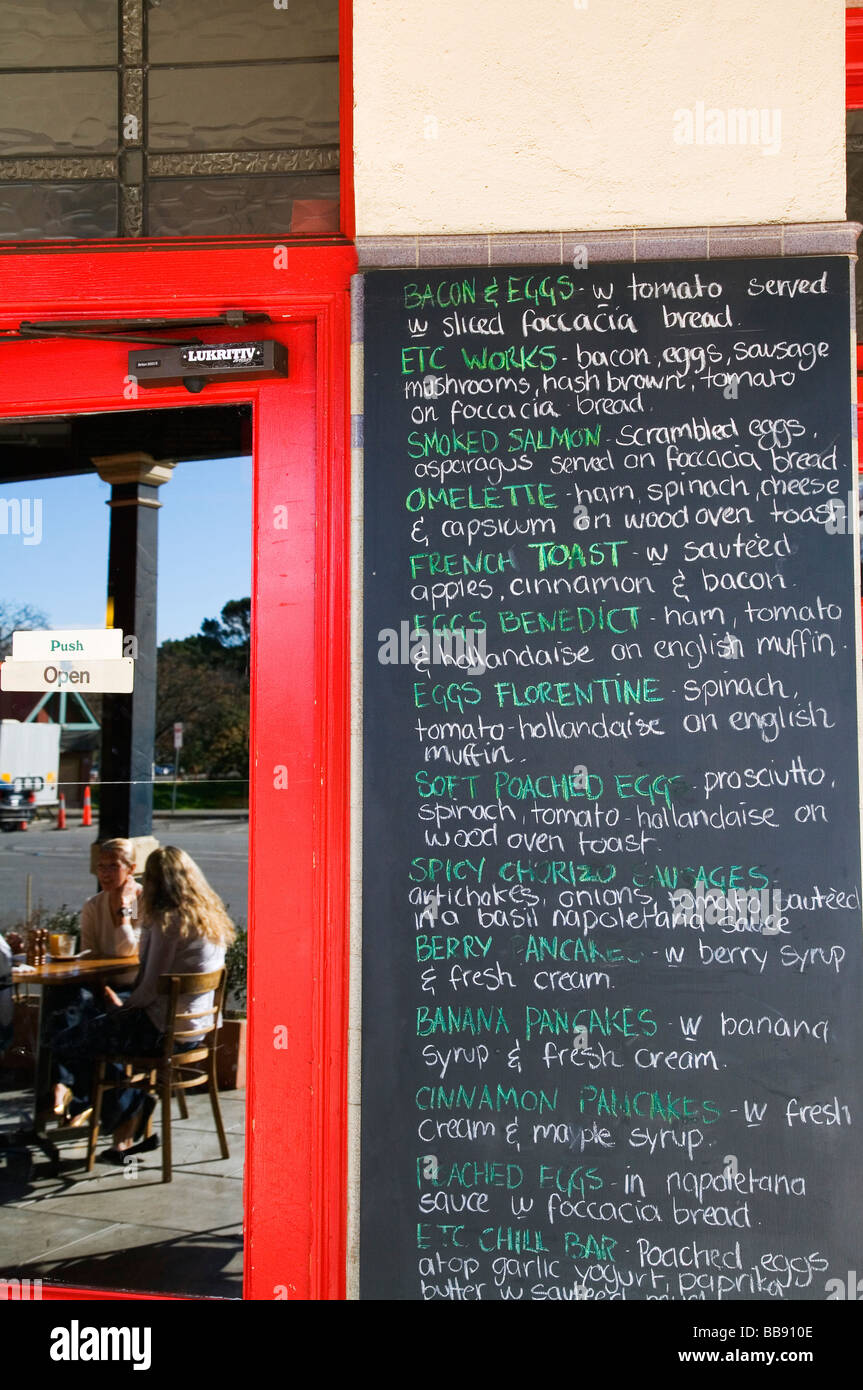 LUKRITIV
Push
Open
BACON & EGGS - w tomato served
w sliced foccacia bread.
ETC WORKS - bacon, eggs, sausage
mushrooms, hash brown, tomato
on foccacia bread.
SMOKED SALMON - scrambled eggs,
asparagus served on foccacia bread.
OMELETTE - ham, spinach, cheese
& capsicum on wood oven toast
FRENCH TOAST - w sautèed
apples, cinnamon & bacon.
EGGS BENEDICT - ham, tomato
& hollandaise on english muffin.
EGGS FLORENTINE - spinach,
tomato-hollandaise on english
muffin.
SOFT POACHED EGGS - prosciutto,
spinach, tomato-hollandaise on
wood oven toast.
SPICY CHORIZO SAUSAGES
artichokes, onions, tomato sautèed
in a basil napoletana sauce
BERRY PANCAKES - w berry syrup
& fresh cream.
BANANA PANCAKES - w banana
syrup & fresh cream.
CINNAMON PANCAKES - w fresh
cream & mayple syrup.
POACHED EGGS - in napoletana
sauce w foccacia bread.
ETC CHILL BAR - Poached eggs
atop garlic yogurt, paprika
butter w sauteed
alamy
Image ID: BB910E
www.alamy.com